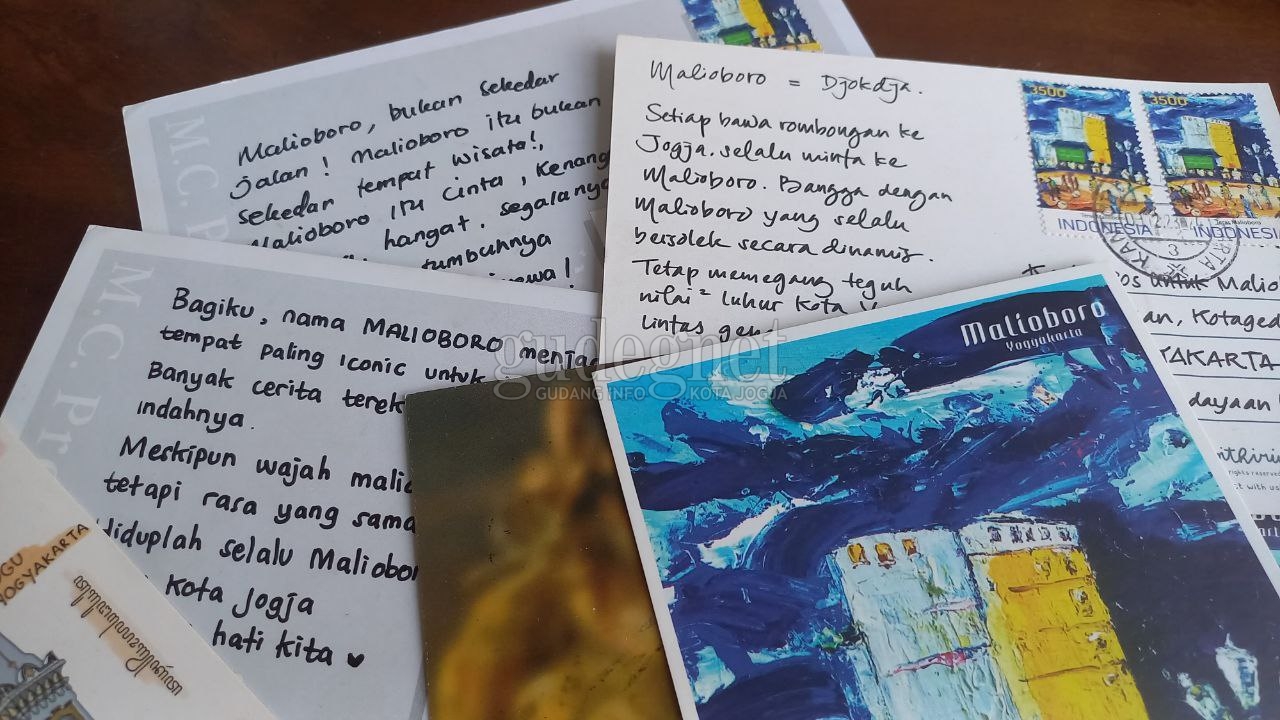 M.C. P
Malioboro, bukan sekedar
jalan! Malioboro itu bukan
sekedar tempat wisata!,
Malioboro itu cinta, Kenang
hangat. segalanya
tumbuhnya
ewa!
Malioboro = Djokdja.
Setiap bawa rombongan ke
Jogja. selalu minta ke
Malioboro. Bangga dengan
Malioboro yang selalu
bersolek secara dinamis.
Tetap memegang teguh
nilai² luhur kota
lintas gen
3500
INDONESIA
3500
INDONESIA
untuk Malio
an, Kotaged
YAKARTA
dayaan
M.C. Pr
Bagiku, nama MALIOBORO menjad
tempat paling iconic untuk
Banyak cerita terek
indahnya.
Meskipun wajah malio
tetapi rasa yang sama
Hiduplah selalu Maliobor
kota Jogja
hati kita ♥
Malioboro
Yogyakarta
gudegnet
GUDANG INFO KOTA JOGJA
UGU
YOGYAKARTA